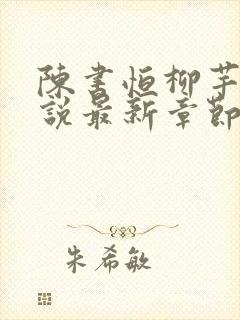 陳書恒柳芊
說最新章節
朱希敏